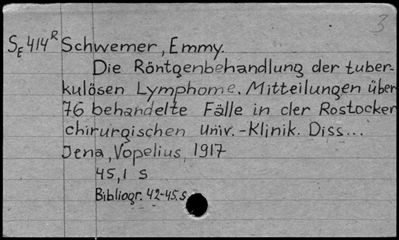 3
S_E 414^R Schwemer, Emmy.
Die Röntgenbehandlung der tuber-
kulösen Lymphome. Mitteilungen über
76 behandelte Fälle in der Rostocker
chirurgischen Univ.-Klinik. Diss...
Jena, Vopelius, 1917
45,1 S
Bibliogr. 42-45.S.